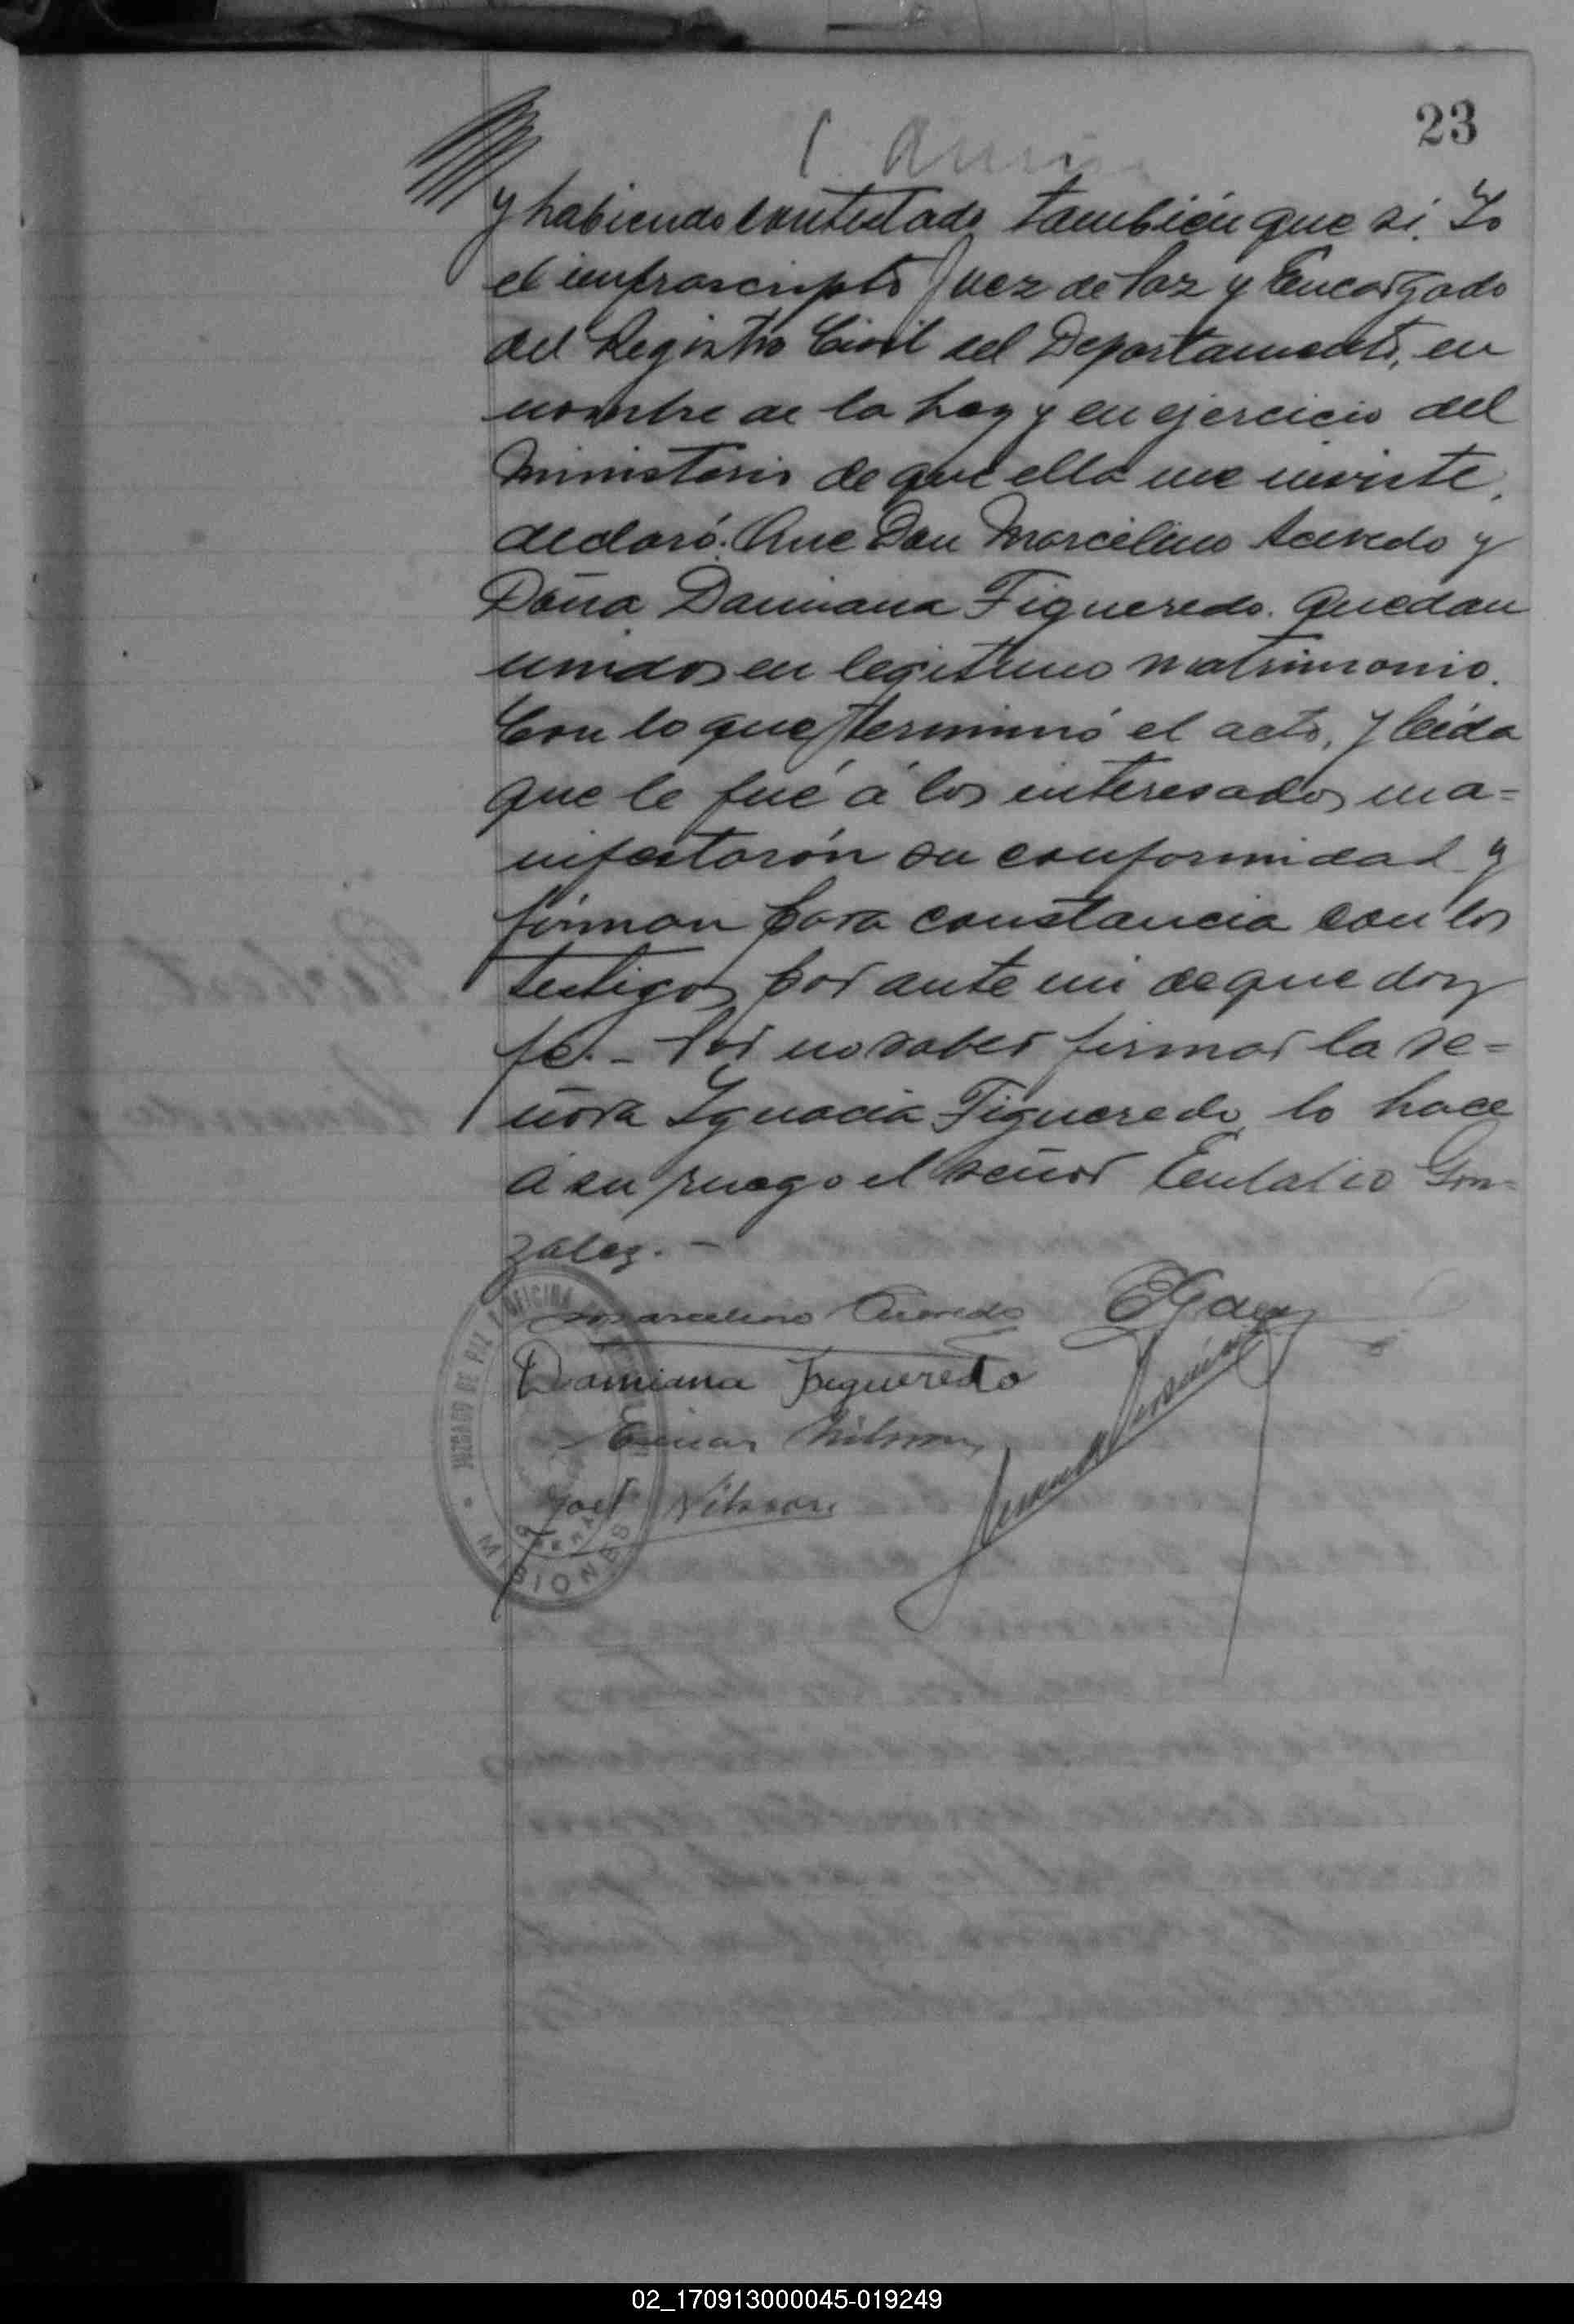 23
y habiendo contestado también que si. Yo
el infrascripto Juez de Paz y Encargado
del Registro Civil del Departamento, en
nombre de la Ley y en ejercicio del
Ministerio de que ella me inviste,
declaró: Que Don Marcelino Acevedo y
Doña Damiana Figueredo. quedan
unidos en legitimo matrimonio.
Con lo que terminó el acto, y leida
que le fué á los interesados ma=
nifestarón su conformidad y
firman para constancia con los
testigos por ante mi de que doy
fé. - Por no saber firmar la se=
ñora Ignacia Figueredo, lo hace
á su ruego el señor Eulalio Gon=
zalez. -
Marcelino Acevedo
Damiana Figueredo
Einar Nilsson
Nilsson
JUZGADO DE PAZ
OFICINA
MISIONES
02_170913000045-019249